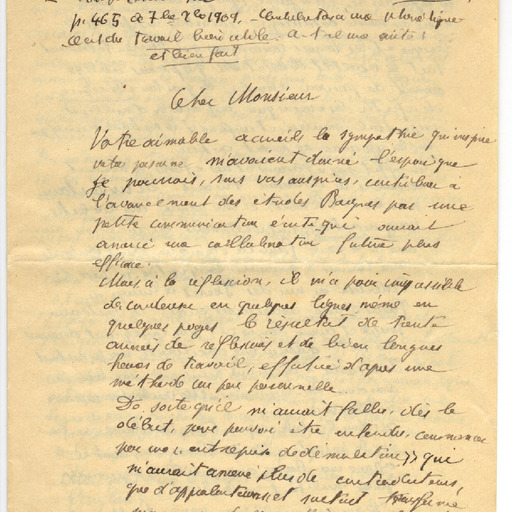 p. 465
Cher Monsieur
Votre aimable accueil, la sympathie qu'inspire
votre personne m'avaient donné l'espoir que
je pourrais, sous vos auspices, contribuer à
l'avancement des études Basques par une
petite communication écrite qui aurait
amorcé ma collaboration future plus
efficace.
Mais à la réflexion, il m'a paru impossible
de condenser en quelques lignes même en
quelques pages le résultat de trente
années de réflexions et de bien longues
heures de travail, effectué d'après une
méthode un peu personnelle.
De sorte qu'il m'aurait fallu, dès le
début, pour pouvoir être entendu, commencer
par une entreprise de démolition » qui
m'aurait amené plus de contradicteurs
que d'approbations et surtout